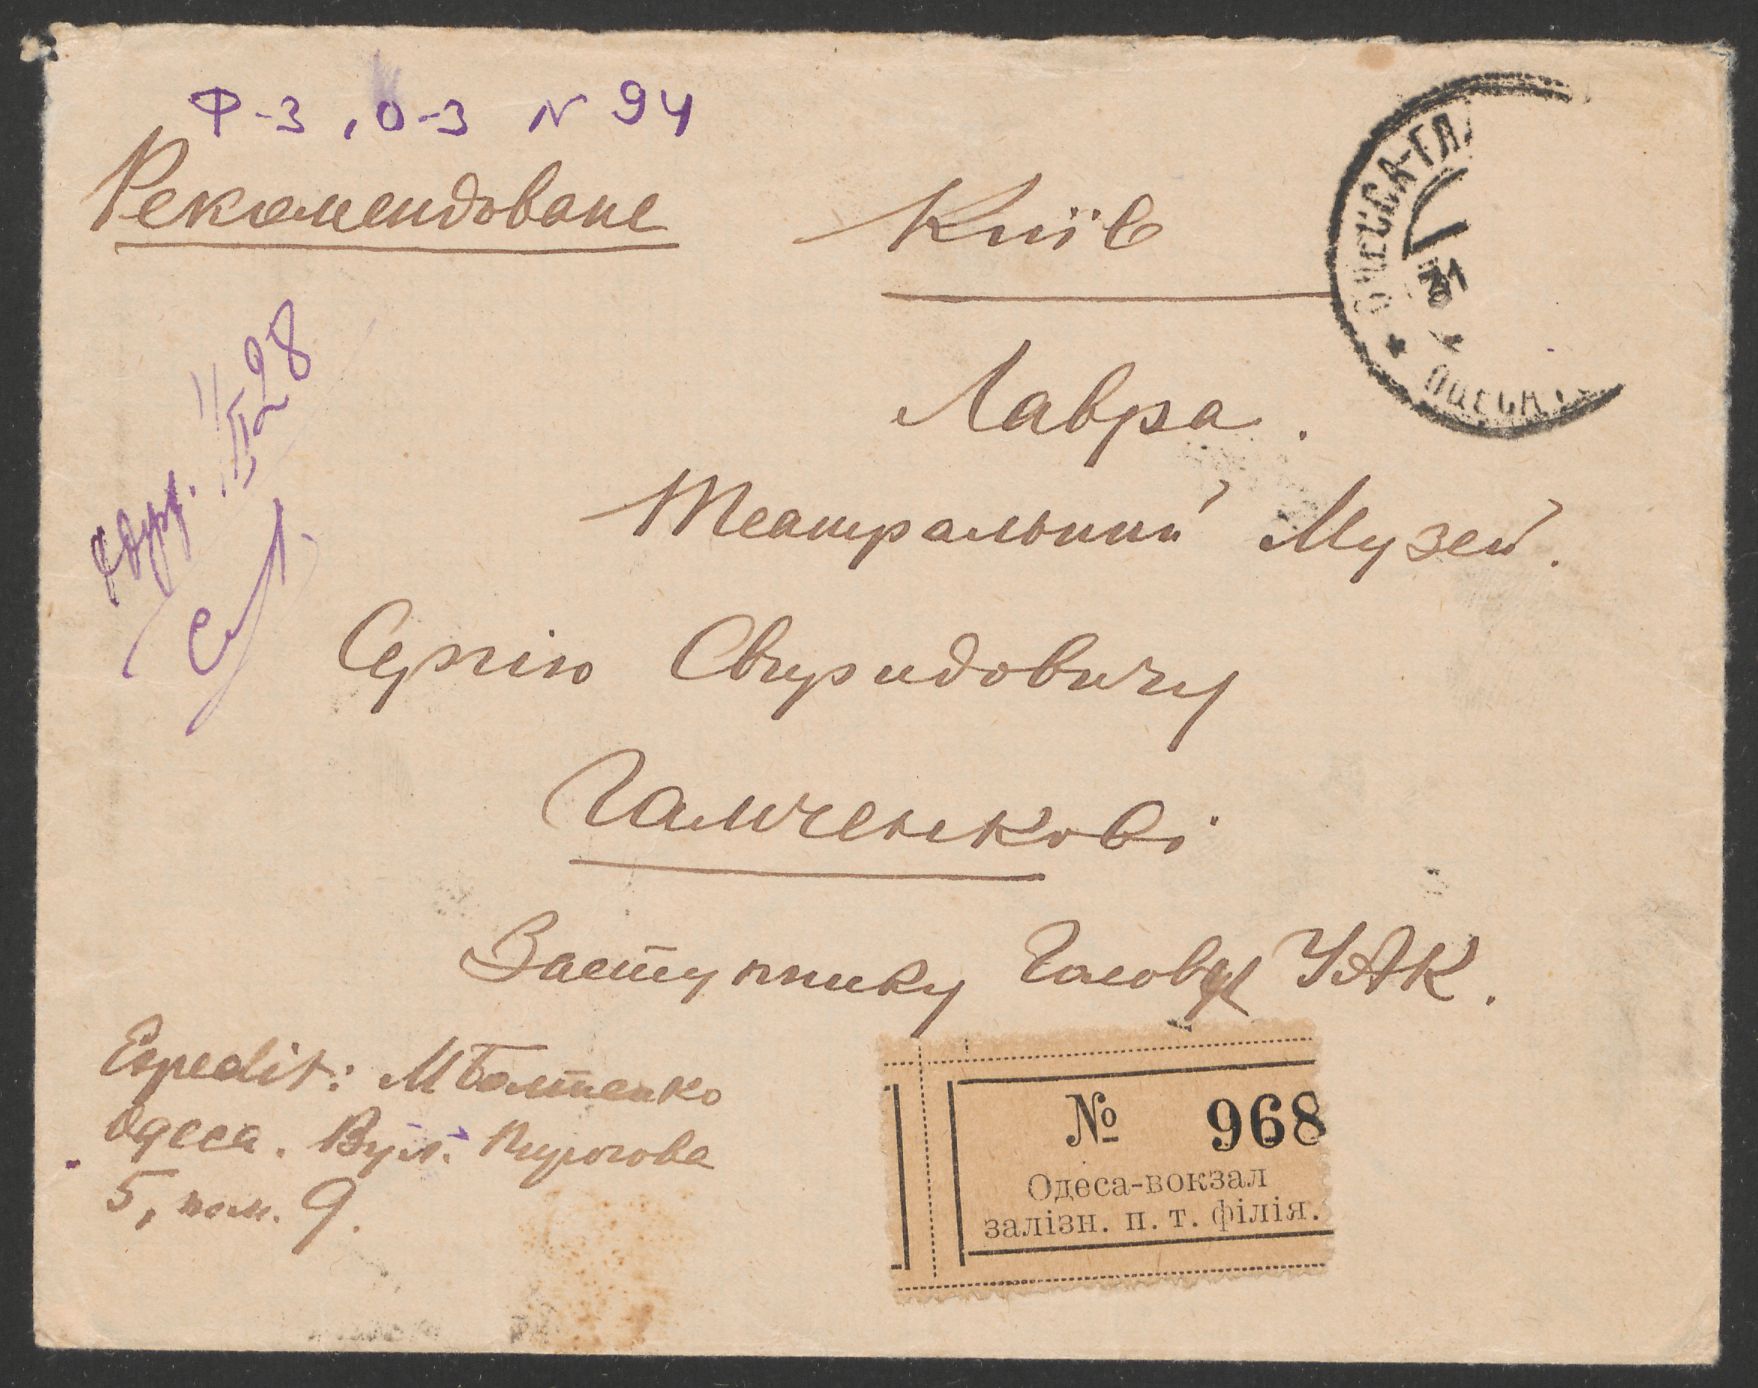 Ф-3, О-3 N 94
Рекомендоване
Київ
ОДЕССА-ГЛ.
Лавра.
Театральний Музей.
Сергію Свиридовичу
Гамченкові
Заступнику Голови УАК.
11/II 28
Expedit: М Болтенко
Одеса. Вул. Пирогова
5, пом. 9.
№ 968
Одеса-вокзал
залізн. п. т. філія.